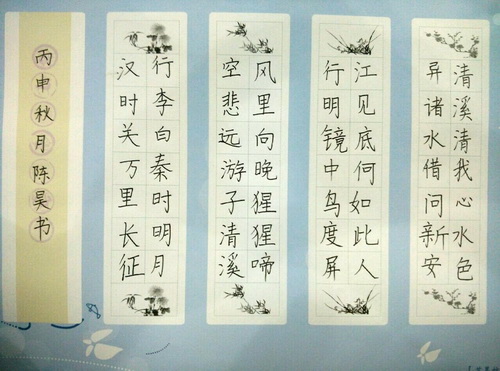 清溪清我心水色
异诸水借问新安
江见底何如此人
行明镜中鸟度屏
风里向晚猩猩啼
空悲远游子清溪
行李白秦时明月
汉时关万里长征
丙申秋月陈昊书